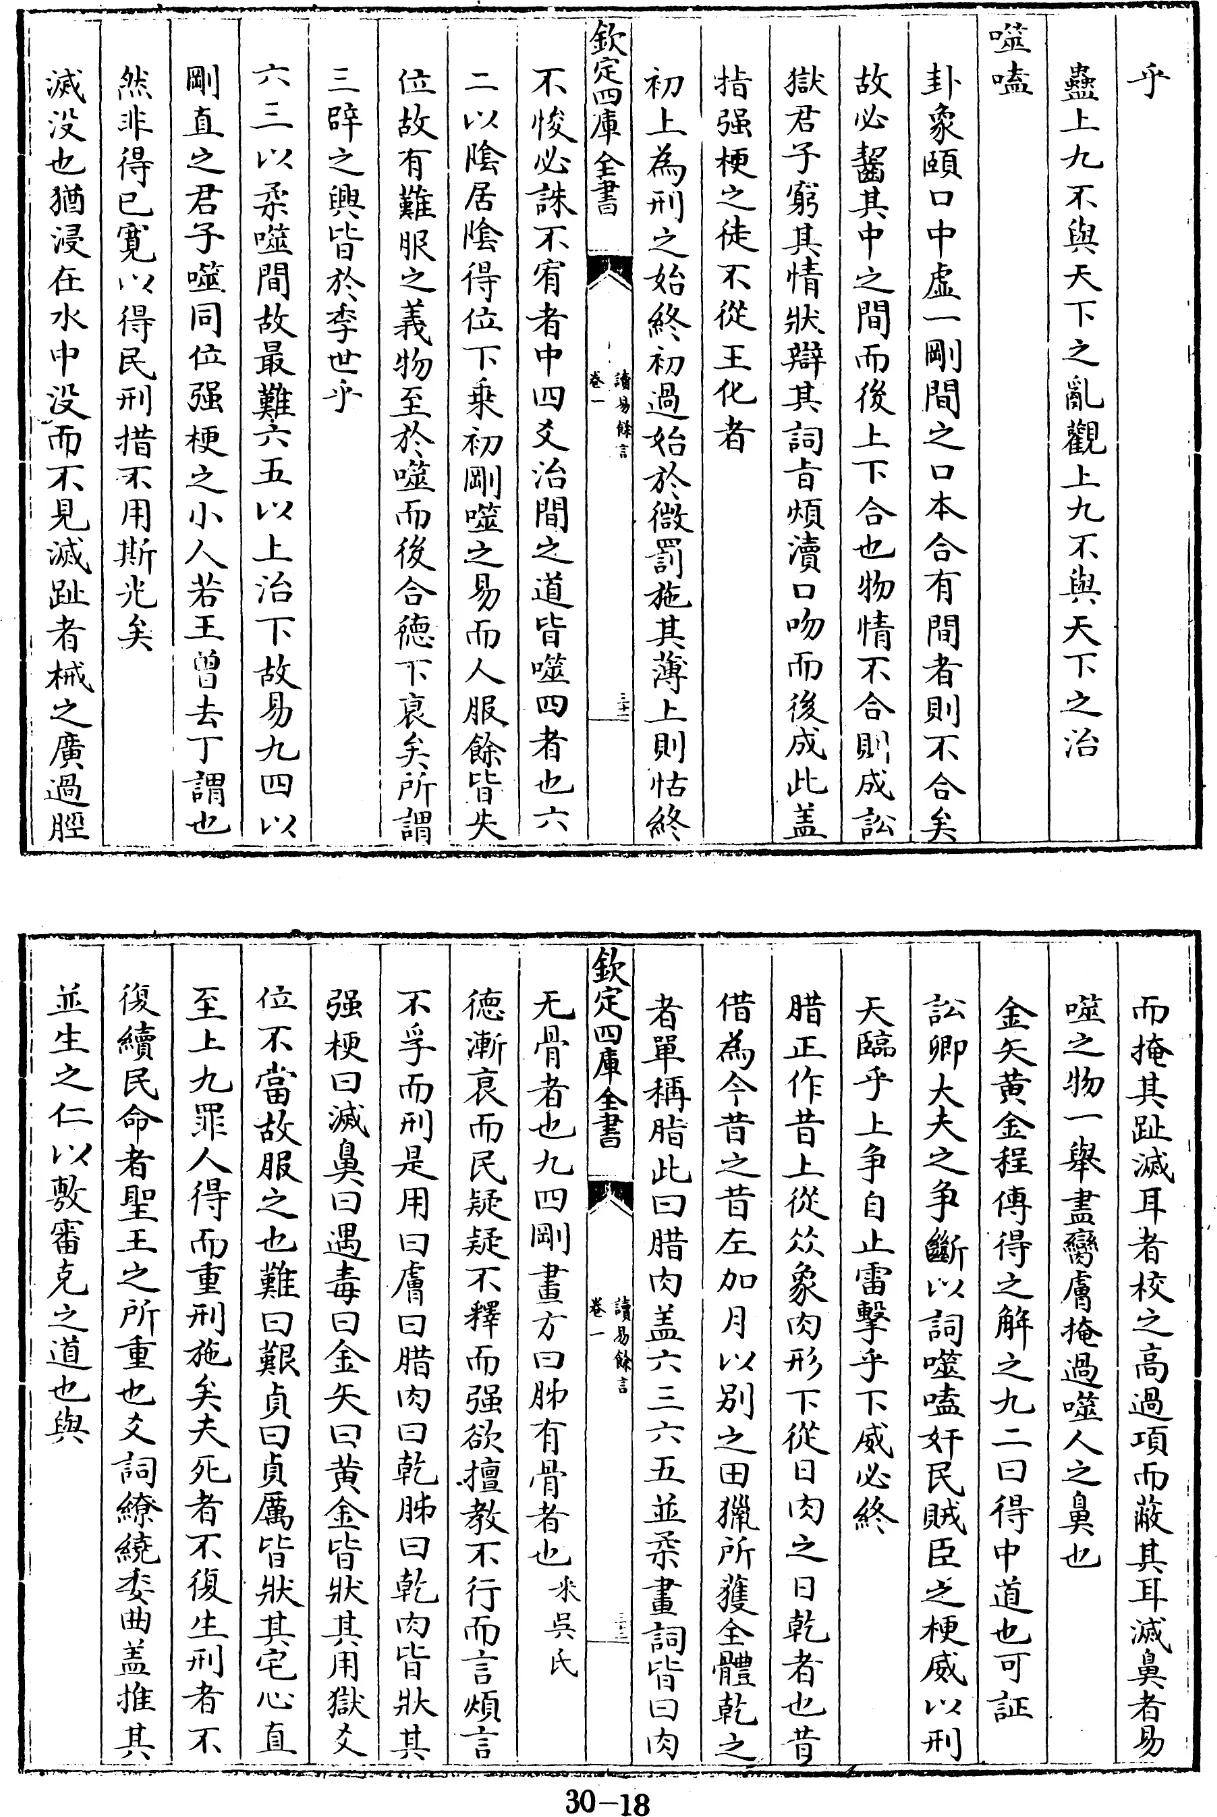 乎
蠱上九不與天下之亂觀上九不與天下之治
噬嗑
卦象頤口中虛一剛間之口本合有間者則不合矣
故必齧其中之間而後上下合也物情不合則成訟
獄君子窮其情狀辯其詞㫖煩瀆口吻而後成此盖
指强梗之徒不從王化者
初上為刑之始終初過始於微罰施其薄上則怙終
欽定四庫全書
讀易餘言
卷一
三十二
不悛必誅不宥者中四爻治間之道皆噬四者也六
二以隂居隂得位下乗初剛噬之易而人服餘皆失
位故有難服之義物至於噬而後合德下衰矣所謂
三辟之興皆於季世乎
六三以柔噬間故最難六五以上治下故易九四以
剛直之君子噬同位强梗之小人若王曾去丁謂也
然非得已寛以得民刑措不用斯光矣
滅没也猶浸在水中没而不見滅趾者械之廣過脛
而掩其趾滅耳者校之高過項而蔽其耳滅鼻者易
噬之物一舉盡臠膚掩過噬人之鼻也
金矢黄金程傳得之解之九二曰得中道也可証
訟卿大夫之争斷以詞噬嗑奸民賊臣之梗威以刑
天臨乎上争自止雷擊乎下威必終
腊正作昔上從仌象肉形下從日肉之日乾者也昔
借為今昔之昔左加月以别之田獵所獲全體乾之
者單稱脂此曰腊肉盖六三六五並柔畫詞皆曰肉
欽定四庫全書
讀易餘言
卷一
三十三
无骨者也九四剛畫方曰胏有骨者也 釆吳氏
德漸衰而民疑疑不釋而强欲擅教不行而言煩言
不孚而刑是用曰膚曰腊肉曰乾胏曰乾肉皆狀其
强梗曰滅鼻曰遇毒曰金矢曰黄金皆狀其用獄爻
位不當故服之也難曰艱貞曰貞厲皆狀其宅心直
至上九罪人得而重刑施矣夫死者不復生刑者不
復續民命者聖王之所重也爻詞繚繞委曲盖推其
並生之仁以敷審克之道也與
30-18